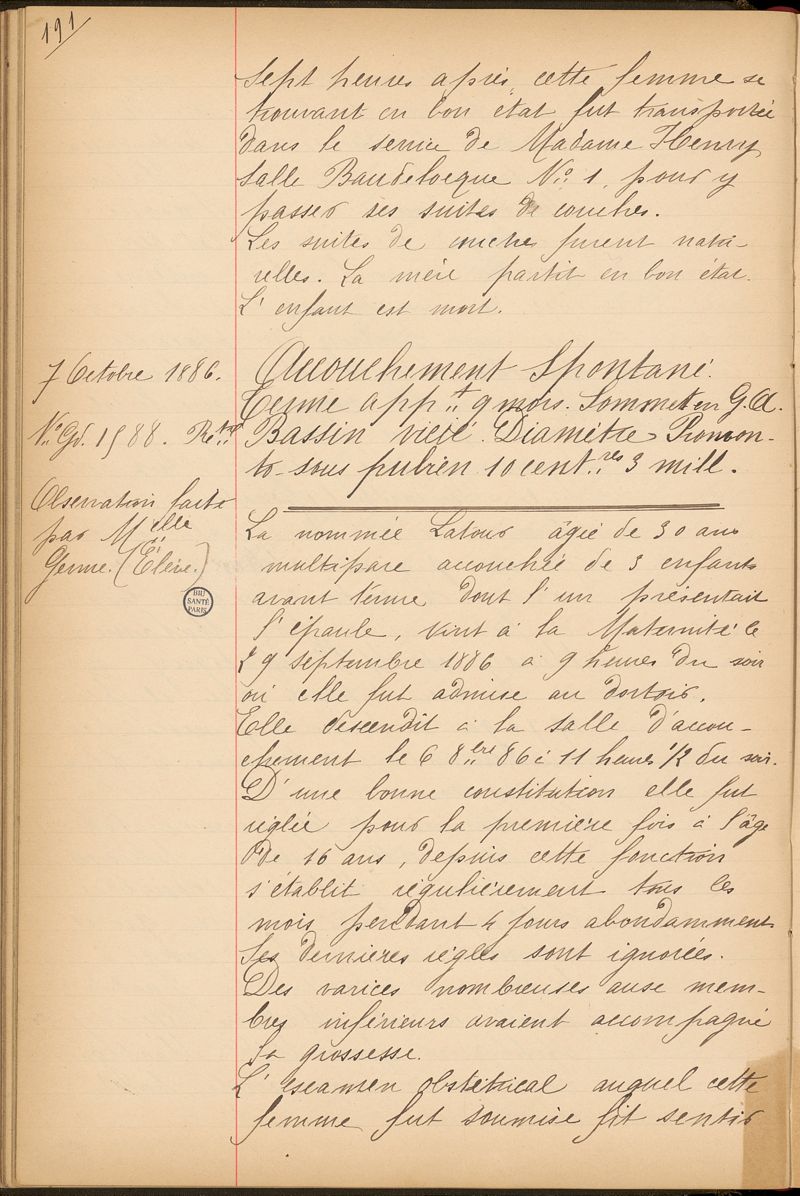 191
Sept heures après, cette femme se
trouvant en bon état fut transportée
dans le service de Madame Henry
salle Baudelocque No. 1, pour y
passer ses suites de couches.
Les suites de couches furent natu-
relles. La mère partit en bon état.
L'enfant est mort.
7 Octobre 1886.
No. Gd. 1588.
Accouchement Spontané.
Terme appt. 9 mois. Sommet en G.A.
Bassin vicié. Diamètre Promon-
to-sous pubien 10 cent.res 3 mill.
Observation faite
par Melle
Germe. (Élève.)
BIU
SANTÉ
PARIS
La nommée Latour âgée de 30 ans
multipare accouchée de 3 enfants
avant terme dont l'un présentait
l'épaule, vint à la Maternité le
29 septembre 1886 à 9 heures du soir
où elle fut admise au dortoir.
Elle descendit à la salle d'accou-
chement le 6 8bre 86 à 11 heures 1/2 du soir.
D'une bonne constitution elle fut
réglée pour la première fois à l'âge
de 16 ans, depuis cette fonction
s'établit régulièrement tous les
mois pendant 4 jours abondamment
Ses dernières règles sont ignorées.
Des varices nombreuses aux mem-
bres inférieurs avaient accompagné
sa grossesse.
L'examen obstétrical auquel cette
femme fut soumise fit sentir